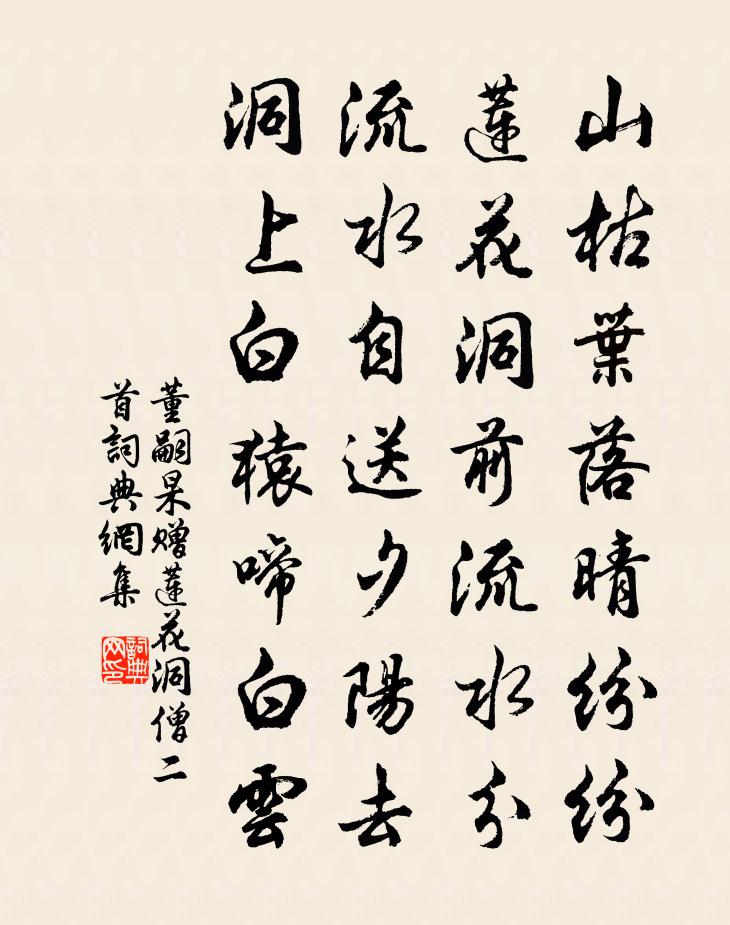 山枯葉落晴紛紛
蓮花洞前流水分
流水自送夕陽去
洞上白猿啼白雲
董嗣杲贈蓮花洞僧二
首詞典網集
詞典
网印